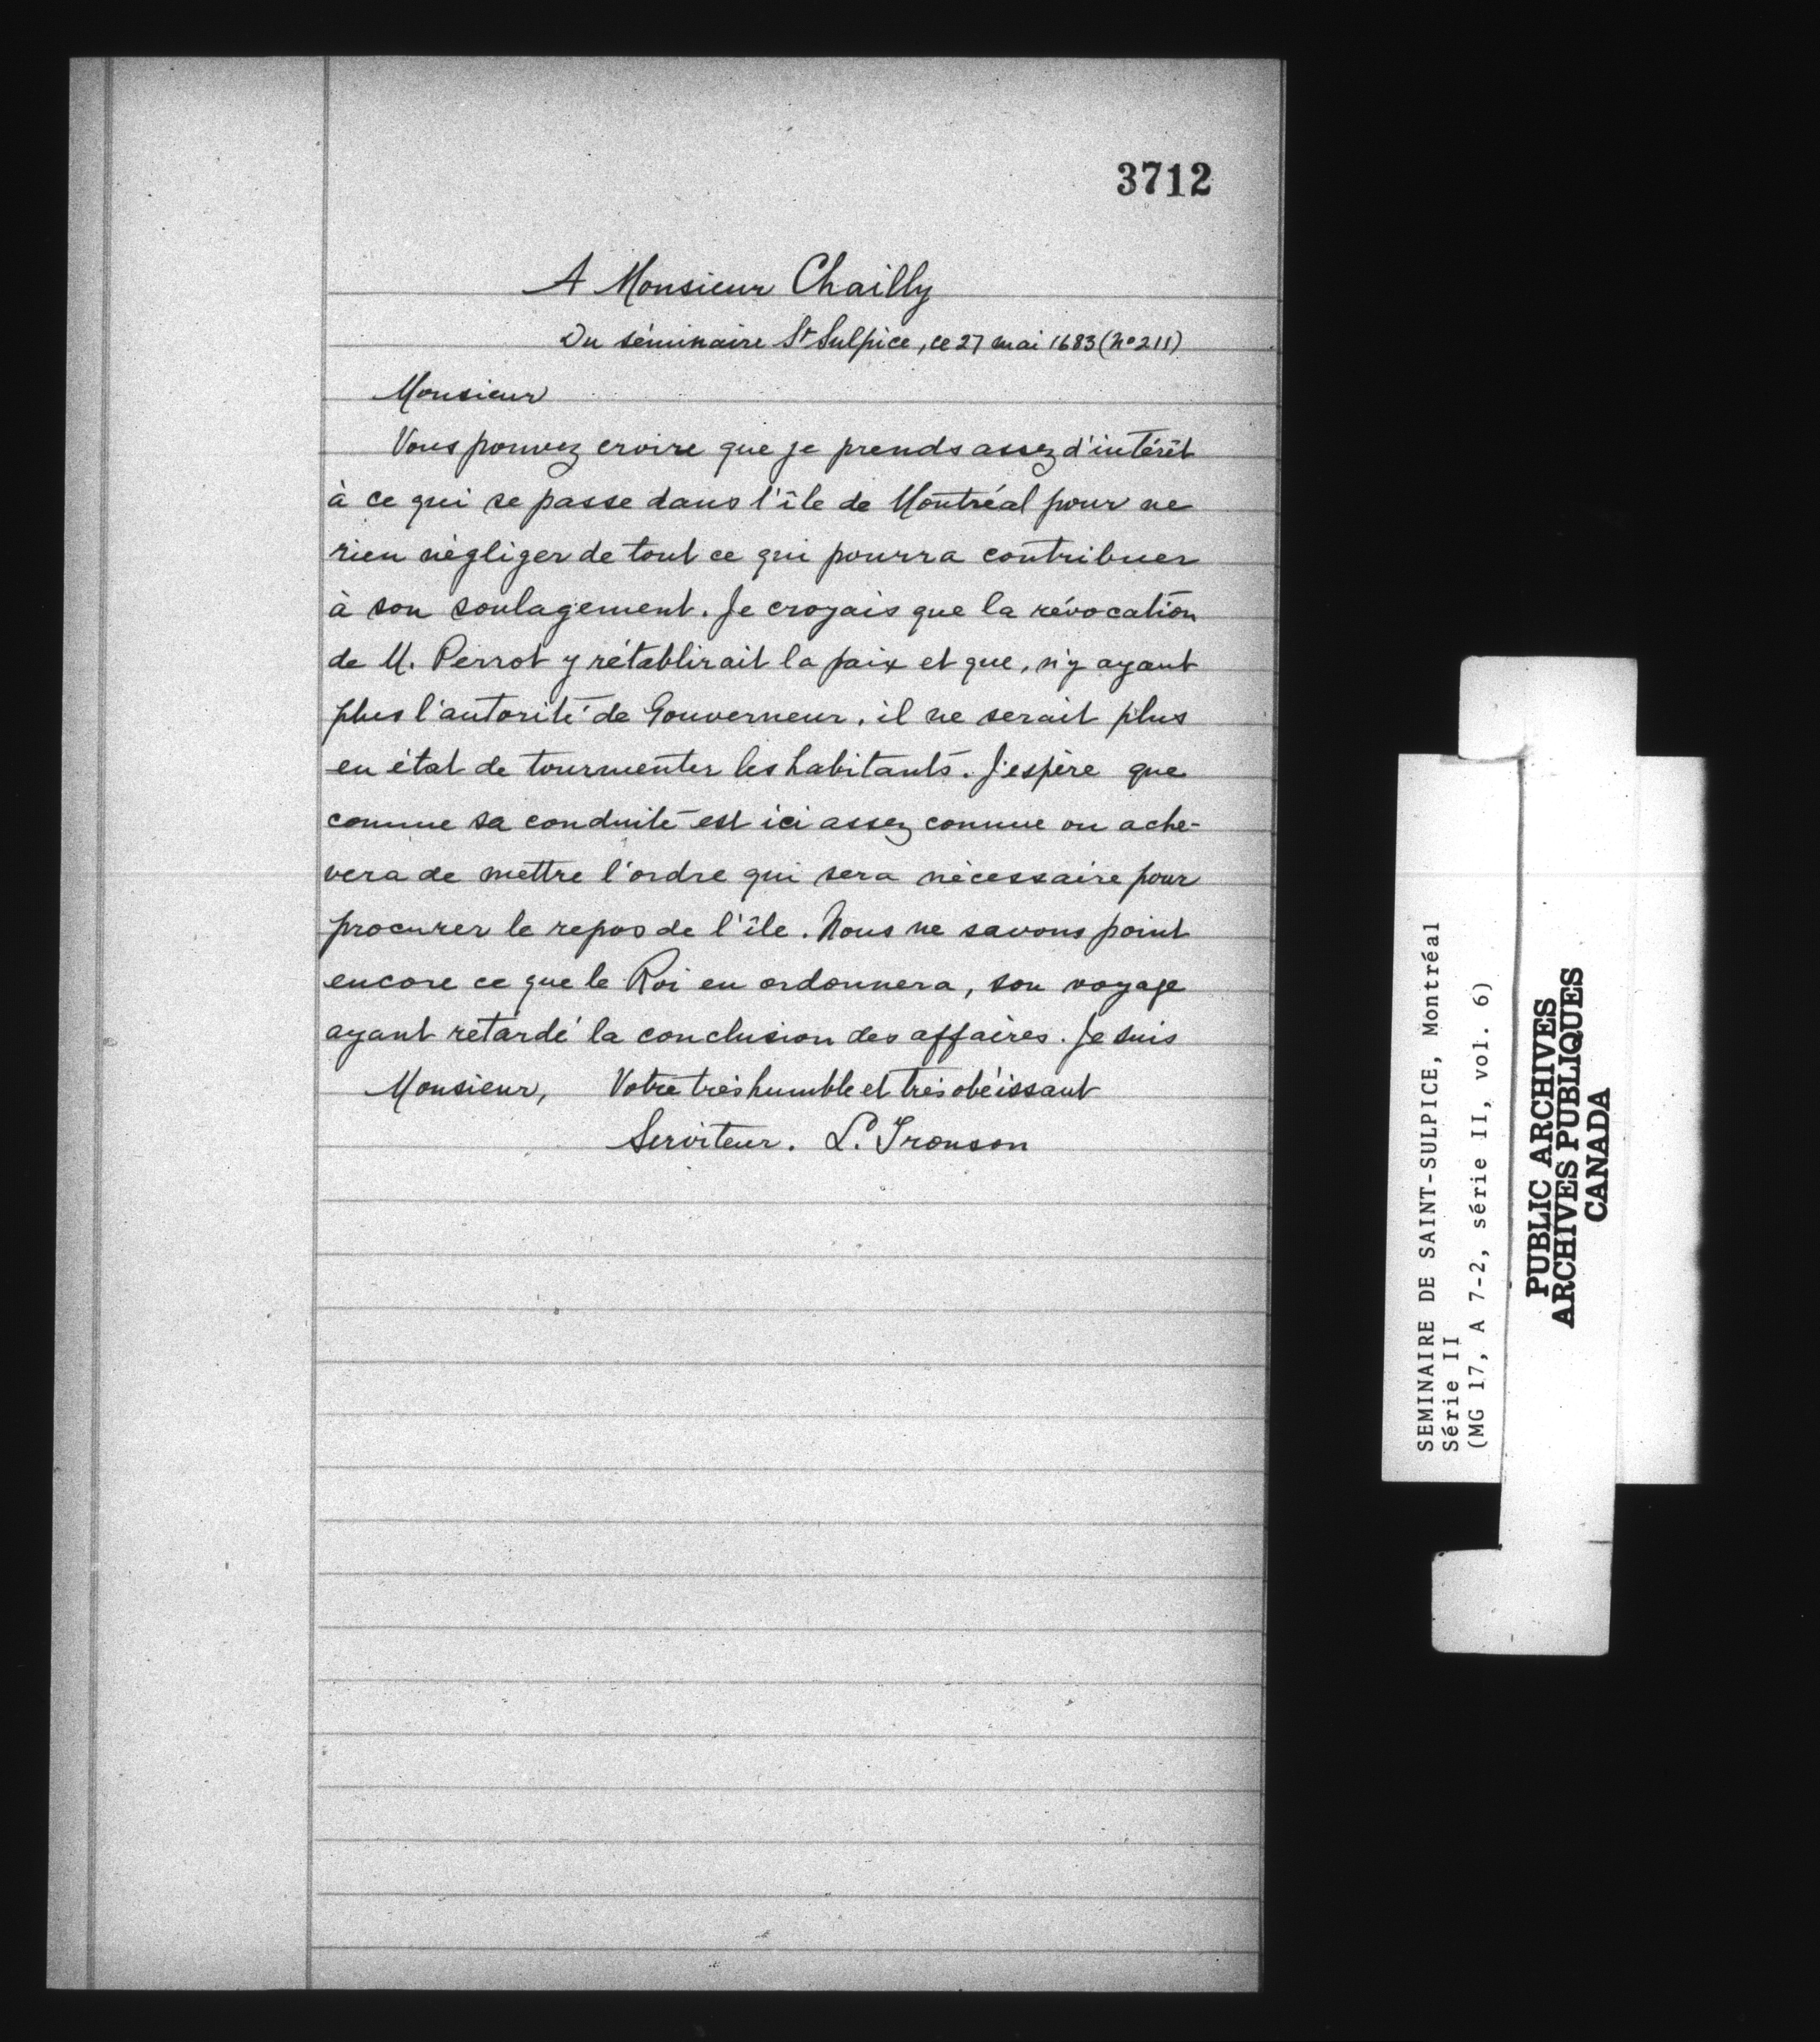 3712
A Monsieur Chailly
Du séminaire St Sulpice, ce 27 mai 1683 (No 211)
Monsieur
Vous pouvez croire que je prends assez d'intérêt
à ce qui se passe dans l'île de Montréal pour ne
rien négliger de tout ce qui pourra contribuer
à son soulagement. Je croyais que la révocation
de M. Perrot y rétablirait la paix et que, n'y ayant
plus l'autorité de Gouverneur, il ne serait plus
en état de tourmenter les habitants. J'espère que
comme sa conduite est ici assez connue on ache-
vera de mettre l'ordre qui sera nécessaire pour
procurer le repos de l'île. Nous ne savons point
encore ce que le Roi en ordonnera, son voyage
ayant retardé la conclusion des affaires. Je suis
Monsieur, Votre très humble et très obéissant
Serviteur. L. Tronson
SEMINAIRE DE SAINT-SULPICE, Montréal
Série II
(MG 17, A 7-2, série II, vol. 6)
PUBLIC ARCHIVES
ARCHIVES PUBLIQUES
CANADA